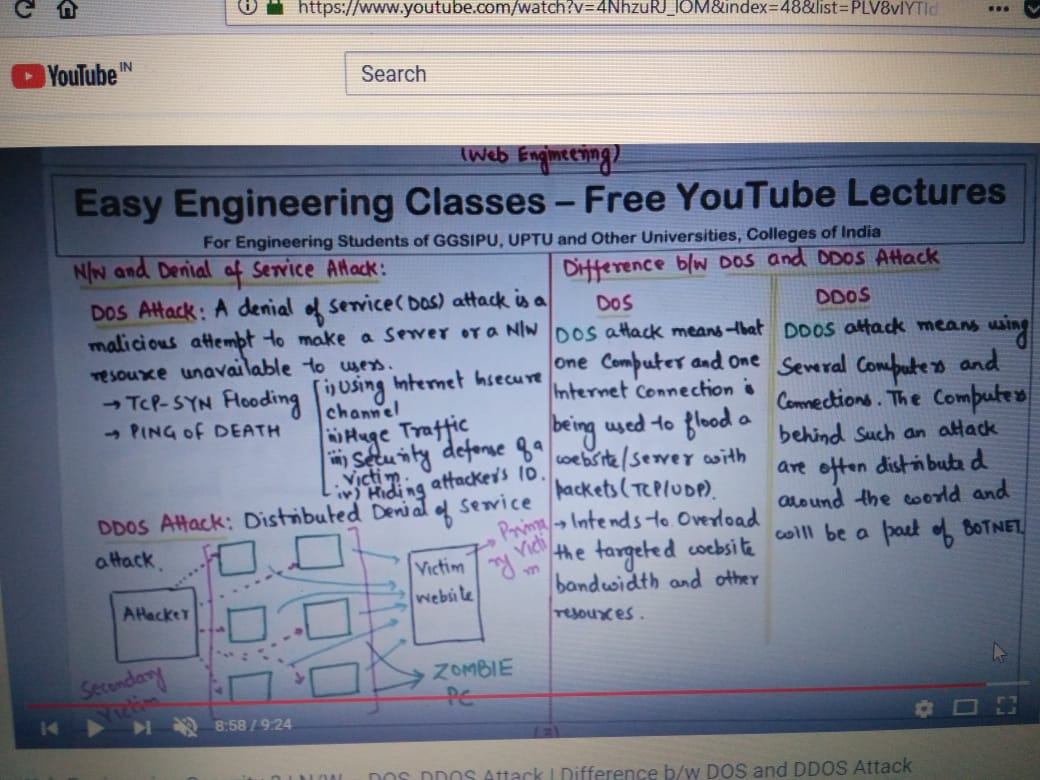 https://www.youtube.com/watch?v=4NhzuRJ_IOM&index=48&list=PLV8vIYTId
YouTube IN
Search
(Web Engineering)
Easy Engineering Classes – Free YouTube Lectures
For Engineering Students of GGSIPU, UPTU and Other Universities, Colleges of India
N/W and Denial of Service Attack:
DOS Attack: A denial of service(DOS) attack is a
malicious attempt to make a server or a N/W
resource unavailable to users.
→ TCP-SYN Flooding
→ PING OF DEATH
i) Using Internet Insecure
channel
ii) Huge Traffic
iii) Security defense of a
victim.
iv) Hiding attacker's ID.
DDOS Attack: Distributed Denial of Service
attack.
Attacker
Secondary
Victim
Victim
website
Prima
ry Victi
m
ZOMBIE
PC
Difference b/w DOS and DDOS Attack
DOS
DOS attack means that
one Computer and one
Internet Connection is
being used to flood a
website/server with
packets(TCP/UDP).
→ Intends to Overload
the targeted website
bandwidth and other
resources.
DDOS
DDOS attack means using
Several Computers and
Connections. The Computers
behind such an attack
are often distributed
around the world and
will be a part of BOTNET.
8:58 / 9:24
DOS, DDOS Attack | Difference b/w DOS and DDOS Attack